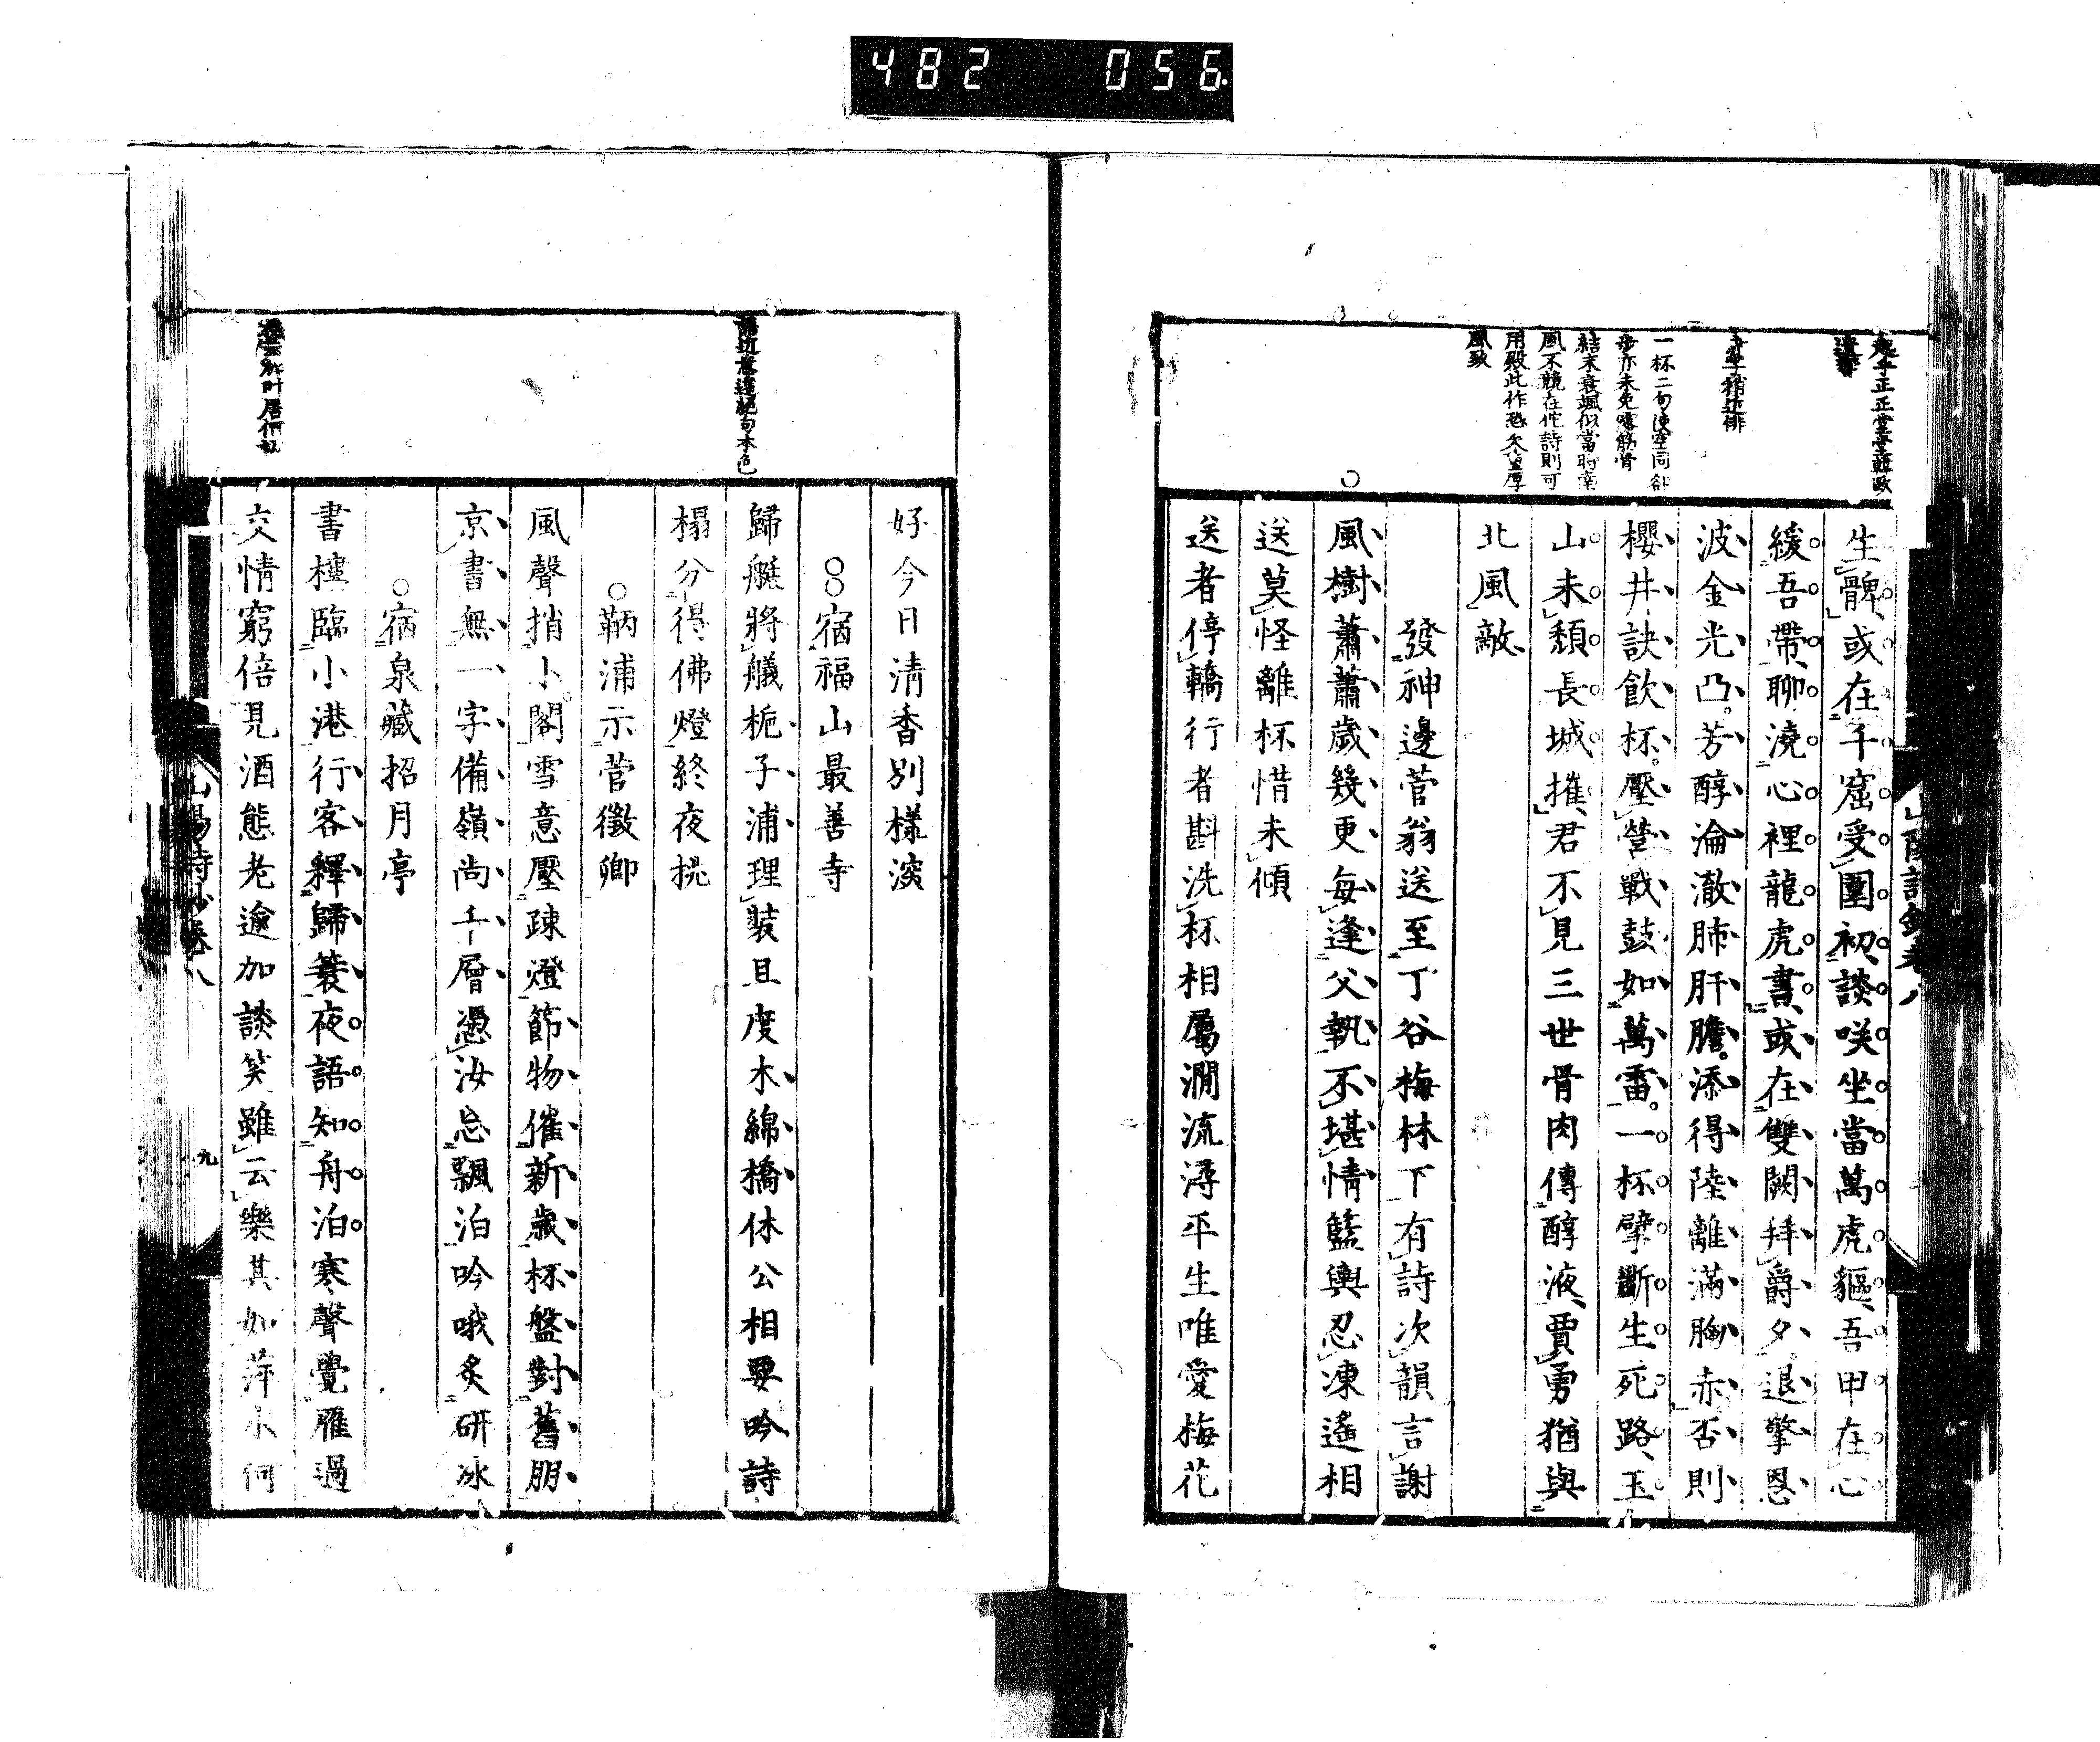 482 056
一杯二句使空同卻
步亦未免露筋骨
結末衰颯似當時南
風不競在他詩則可
用殿此作恐欠重厚
風致
生髀或在千窟受圍初談咲坐當萬虎貙吾甲在心
緩吾帶聊澆心裡龍虎書或在雙闕拜爵夕退擎恩
波金光凸芳醇淪澈肺肝膽添得陸離滿胸赤否則
櫻井訣飲杯壓營戰鼓如萬雷一杯擘斷生死路玉
山未頽長城摧君不見三世骨肉傳醇液賈勇猶與
北風敵
發神邊菅翁送至丁谷梅林下有詩次韻言謝
風樹蕭蕭歲幾更每逢父執不堪情籃輿忍凍遙相
送莫怪離杯惜未傾
送者停轎行者斟洗杯相屬澗流潯平生唯愛梅花
山陽詩鈔卷八
好今日清香別樣深
宿福山最善寺
歸艇將艤梔子浦理裝且度木綿橋休公相要吟詩
榻分得佛燈終夜挑
鞆浦示菅徵卿
風聲捎小閣雪意壓疎燈節物催新歲杯盤對舊朋
京書無一字備嶺尚千層遇汝忘飄泊吟哦炙研冰
宿泉藏招月亭
書樓臨小港行客釋歸簑夜語知舟泊寒聲覺雁過
交情窮倍見酒態老逾加談笑雖云樂其如萍水何
山陽詩鈔卷八
九